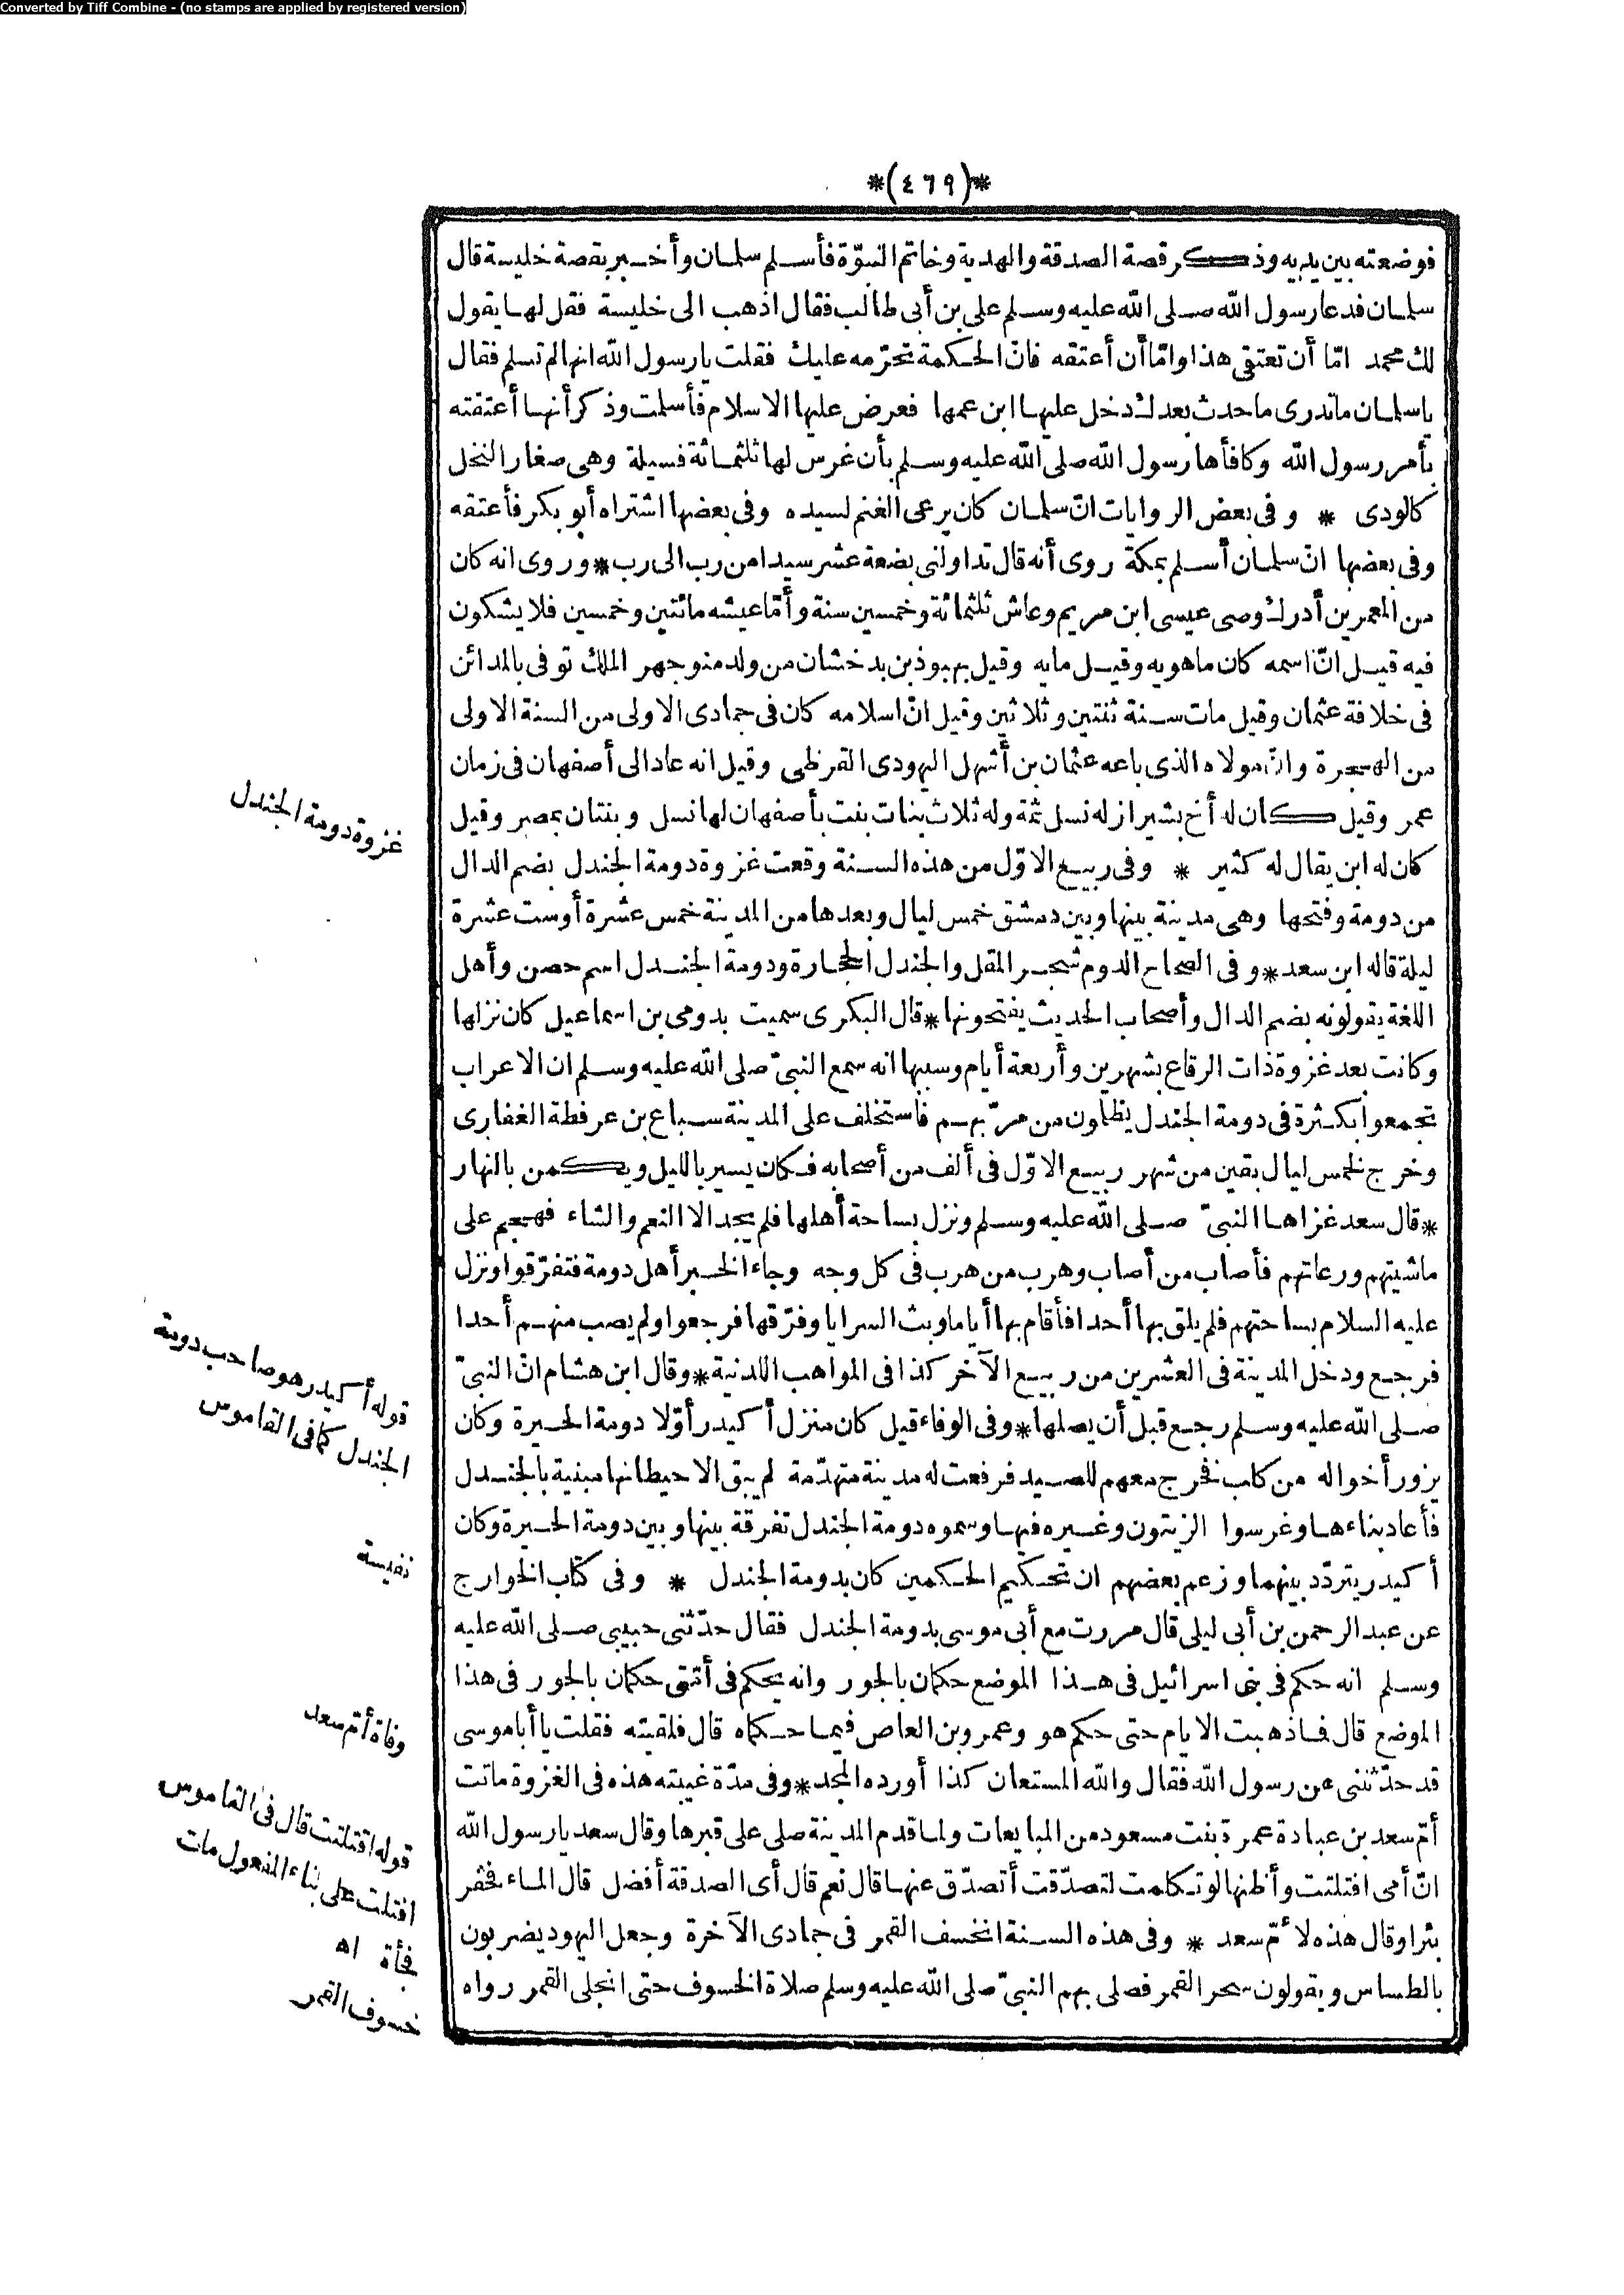 Converted by Tiff Combine - (no stamps are applied by registered version)
*(٤٦٩)*
فوضعته بين يديه وذكر قصة الصدقة والهدية وخاتم النبوّة فأسلم سلمان وأخبر بقصة خليسة قال
سلمان فدعا رسول الله صلى الله عليه وسلم على بن أبى طالب فقال اذهب الى خليسة فقل لها يقول
لك محمد امّا أن تعتقى هذا وامّا أن أعتقه فانّ الحكمة تحرّمه عليك فقلت يا رسول الله انها لم تسلم فقال
يا سلمان ما تدرى ما حدث بعدك دخل عليها ابن عمها فعرض عليها الاسلام فأسلمت وذكر أنها أعتقته
بأمر رسول الله وكافأها رسول الله صلى الله عليه وسلم بأن غرس لها ثلثمائة فسيلة وهى صغار النخل
كالودى * وفى بعض الروايات انّ سلمان كان يرعى الغنم لسيده وفى بعضها اشتراه أبو بكر فأعتقه
وفى بعضها انّ سلمان أسلم بمكة روى أنه قال تداولنى بضعة عشر سيدا من رب الى رب * وروى انه كان
من المعمرين أدرك وصى عيسى ابن مريم وعاش ثلثمائة وخمسين سنة وأمّا عيشه مائتين وخمسين فلا يشكون
فيه قيل انّ اسمه كان ماهويه وقيل مايه وقيل بهبوذ بن بدخشان من ولد منوجهر الملك توفى بالمدائن
فى خلافة عثمان وقيل مات سنة ثنتين وثلاثين وقيل انّ اسلامه كان فى جمادى الاولى من السنة الاولى
من الهجرة وانّ مولاه الذى باعه عثمان بن أشهل اليهودى القرظى وقيل انه عاد الى أصفهان فى زمان
عمر وقيل كان له أخ بشيراز له نسل ثمة وله ثلاث بنات بنت بأصفهان لها نسل وبنتان بمصر وقيل
غزوة دومة الجندل
كان له ابن يقال له كثير * وفى ربيع الاوّل من هذه السنة وقعت غزوة دومة الجندل بضم الدال
من دومة وفتحها وهى مدينة بينها وبين دمشق خمس ليال وبعدها من المدينة خمس عشرة أو ست عشرة
ليلة قاله ابن سعد * وفى الصحاح الدوم شجر المقل والجندل الحجارة ودومة الجندل اسم حصن وأهل
اللغة يقولونه بضم الدال وأصحاب الحديث يفتحونها * قال البكرى سميت بدومى بن اسماعيل كان نزلها
وكانت بعد غزوة ذات الرقاع بشهرين وأربعة أيام وسببها انه سمع النبىّ صلى الله عليه وسلم ان الاعراب
تجمعوا بكثرة فى دومة الجندل يظلمون من مرّ بهم فاستخلف على المدينة سباع بن عرفطة الغفارى
وخرج لخمس ليال بقين من شهر ربيع الاوّل فى ألف من أصحابه فكان يسير بالليل ويكمن بالنهار
* قال سعد غزاها النبىّ صلى الله عليه وسلم ونزل بساحة أهلها فلم يجد الا النعم والشاء فهجم على
ماشيتهم ورعاتهم فأصاب من أصاب وهرب من هرب فى كل وجه وجاء الخبر أهل دومة فتفرّقوا ونزل
عليه السلام بساحتهم فلم يلق بها أحدا فأقام بها أياما وبث السرايا وفرّقها فرجعوا ولم يصب منهم أحدا
فرجع ودخل المدينة فى العشرين من ربيع الآخر كذا فى المواهب اللدنية * وقال ابن هشام انّ النبىّ
قوله أكيدر هو صاحب دومة
الجندل كما فى القاموس
صلى الله عليه وسلم رجع قبل أن يصلها * وفى الوفاء قيل كان منزل أكيدر أوّلا دومة الحيرة وكان
يزور أخواله من كلب فخرج معهم للصيد فرفعت له مدينة متهدّمة لم يبق الا حيطانها مبنية بالجندل
فأعاد بناءها وغرسوا الزيتون وغيره فيها وسموه دومة الجندل تفرقة بينها وبين دومة الحيرة وكان
نفيسة
أكيدر يتردّد بينهما وزعم بعضهم ان تحكيم الحكمين كان بدومة الجندل * وفى كتاب الخوارج
عن عبد الرحمن بن أبى ليلى قال مررت مع أبى موسى بدومة الجندل فقال حدّثنى حبيبى صلى الله عليه
وسلم انه حكم فى بنى اسرائيل فى هذا الموضع حكمان بالجور وانه يحكم فى أمّتى حكمان بالجور فى هذا
الموضع قال فما ذهبت الايام حتى حكم هو وعمرو بن العاص فيما حكماه قال فلقيته فقلت يا أبا موسى
وفاة أمّ سعد
قد حدّثتنى عن رسول الله فقال والله المستعان كذا أورده المجد * وفى مدّة غيبته هذه فى الغزوة ماتت
أمّ سعد بن عبادة عمرة بنت مسعود من المبايعات ولما قدم المدينة صلى على قبرها وقال سعد يا رسول الله
قوله افتلتت قال فى القاموس
افتلت على بناء المفعول مات
فجأة اه
انّ أمى افتلتت وأظنها لو تكلمت لتصدّقت أتصدّق عنها قال نعم قال أى الصدقة أفضل قال الماء فحفر
بئرا وقال هذه لأمّ سعد * وفى هذه السنة انخسف القمر فى جمادى الآخرة وجعل اليهود يضربون
خسوف القمر
بالطساس ويقولون سحر القمر فصلى بهم النبىّ صلى الله عليه وسلم صلاة الخسوف حتى انجلى القمر رواه